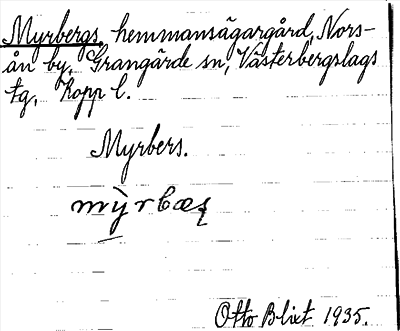 Myrbergs, hemmansägargård, Nors-
ån by, Grangärde sn, Västerbergslags
tg, Kopp l.
Myrbers.
mỳrbæş
Otto Blixt 1935.